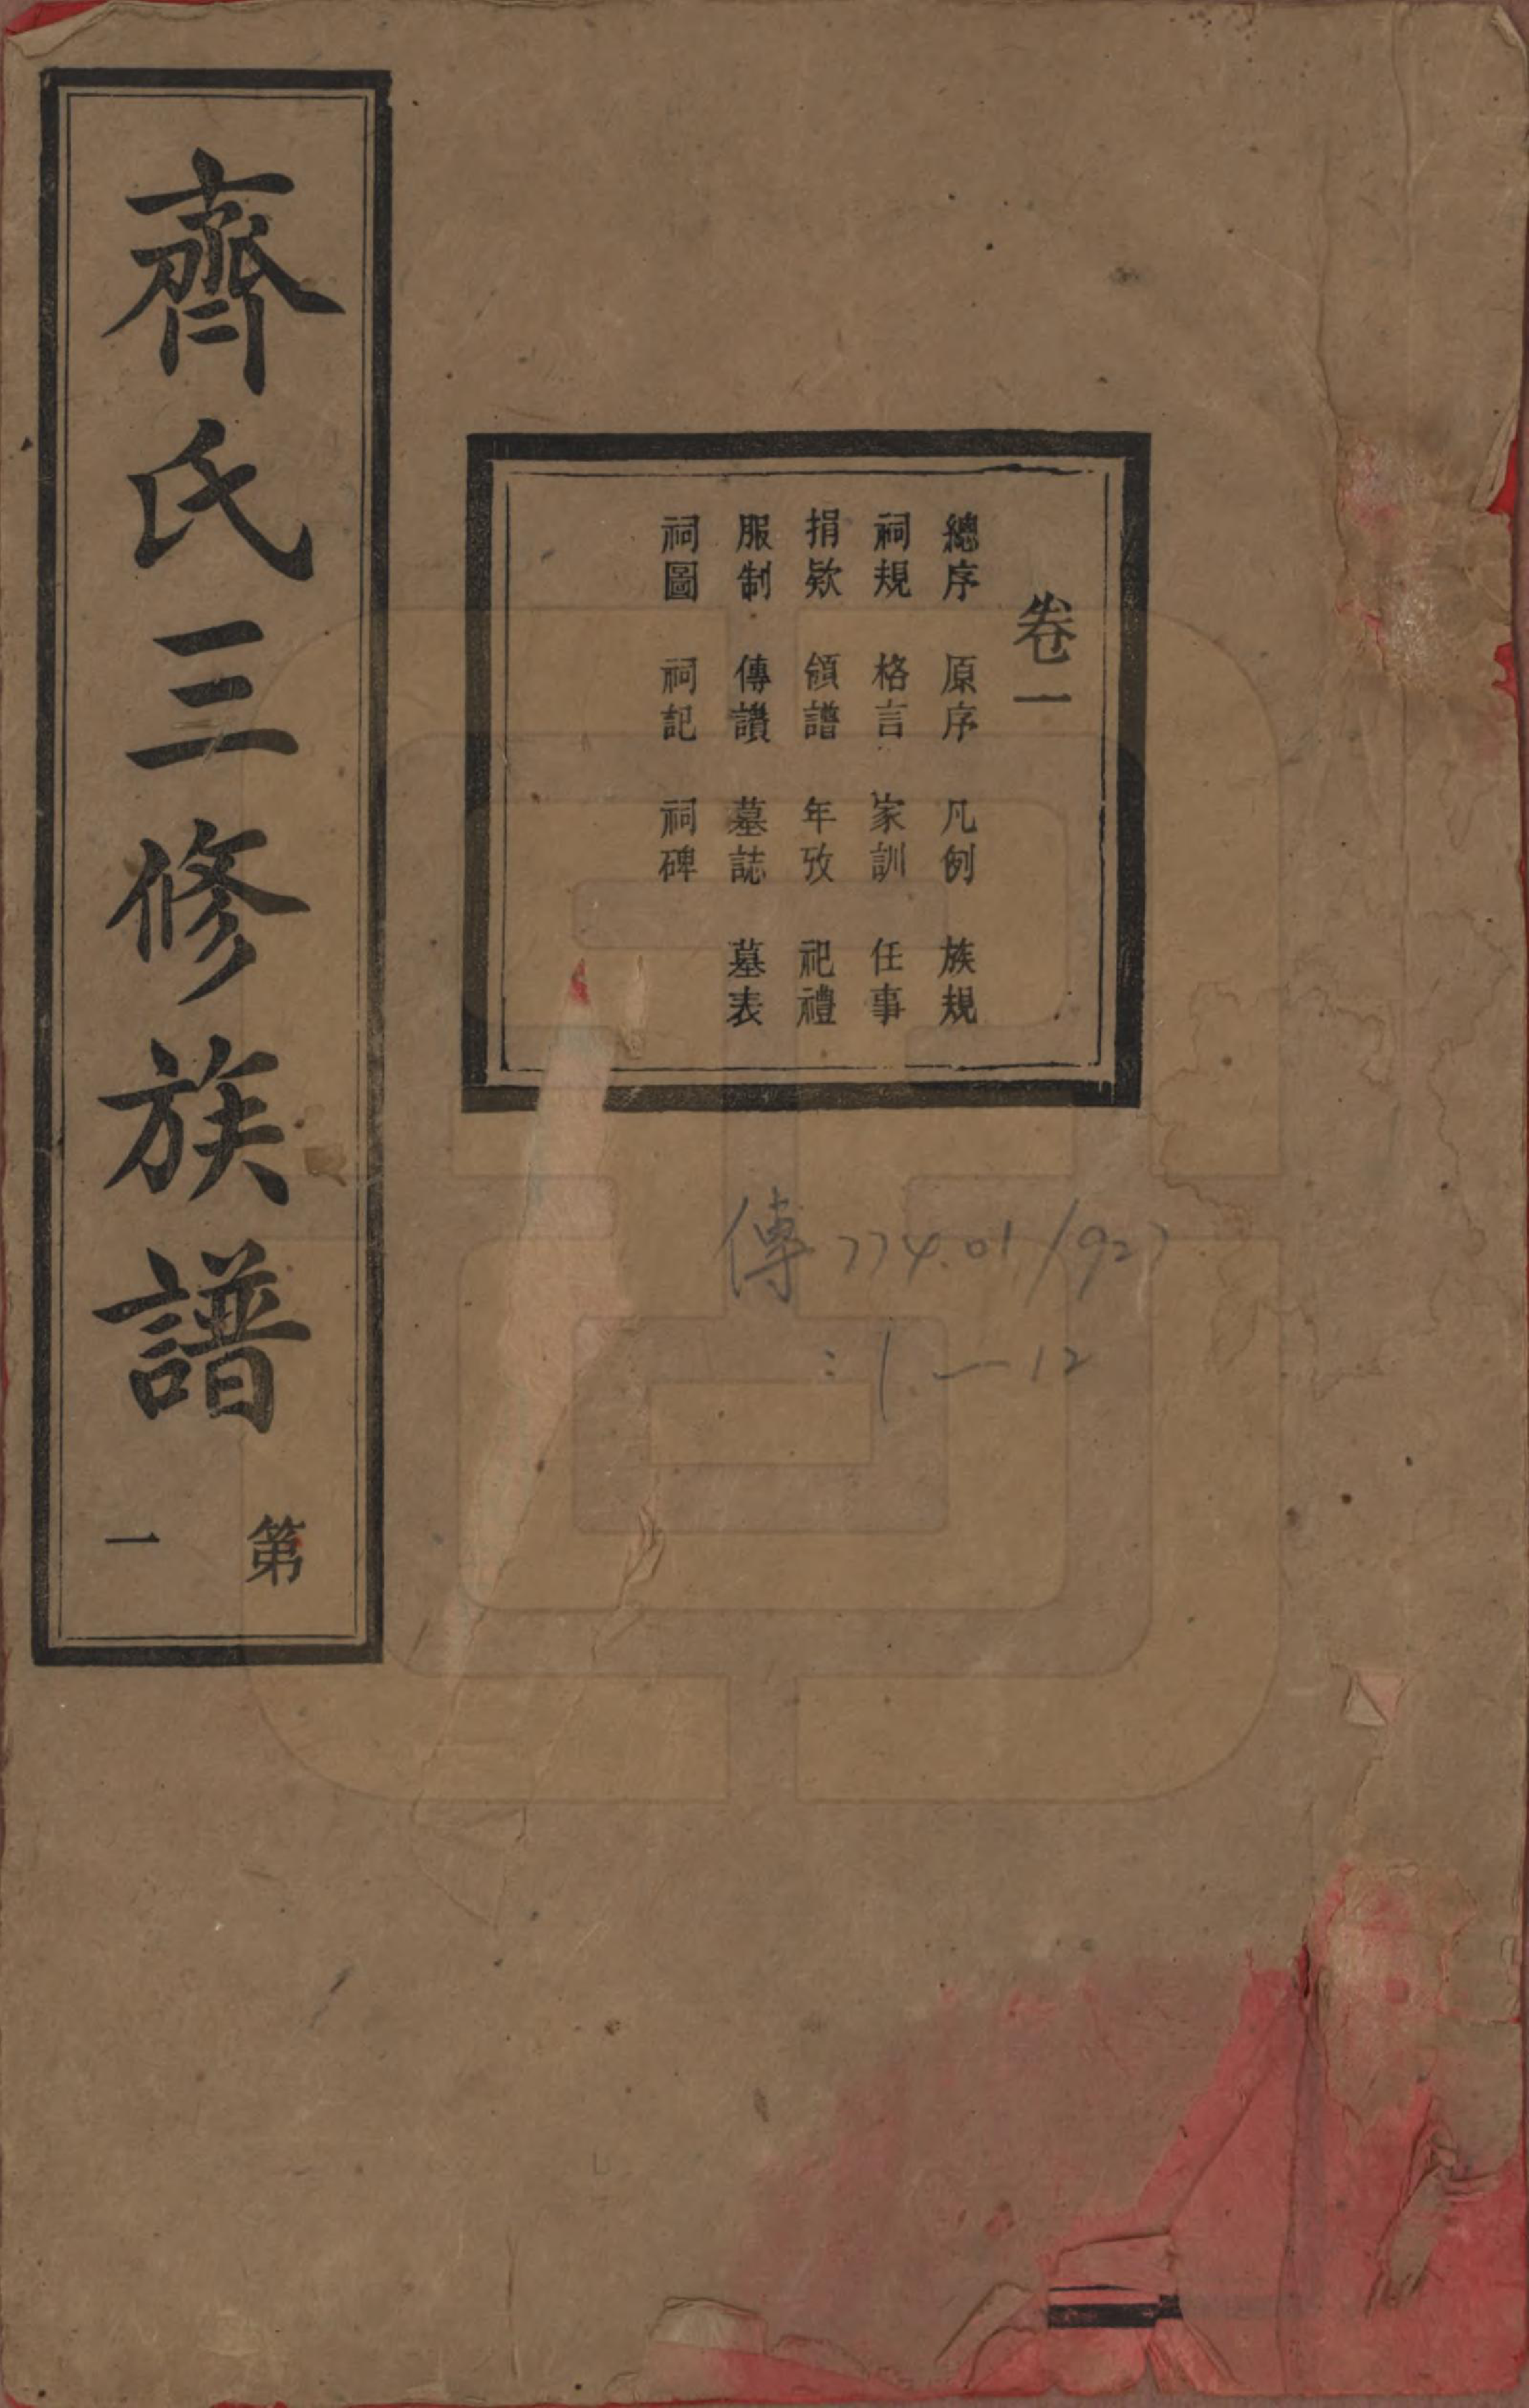 卷一
總序 原序 凡例 族規
祠規 格言 家訓 任事
捐欵 領譜 年攷 祀禮
服制 傳讚 墓誌 墓表
祠圖 祠記 祠碑
齊氏三修族譜
第一
傳774.01/927
:1—12